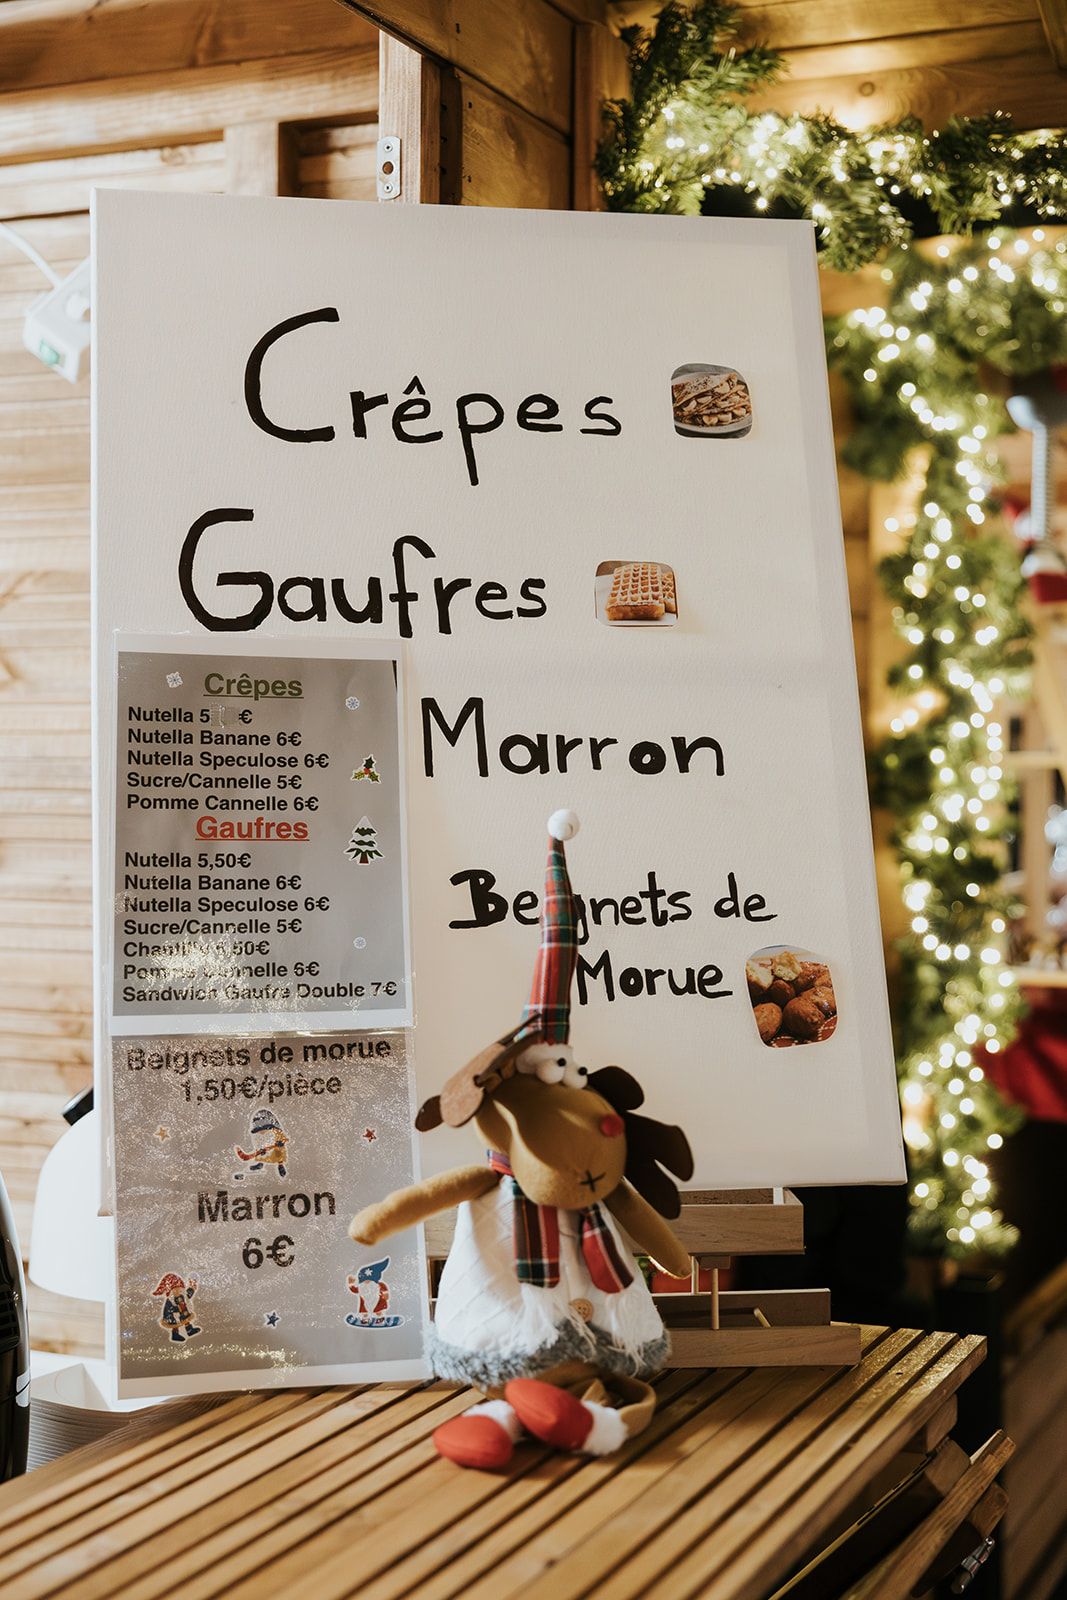 Crêpes
Gaufres
Marron
Beignets de
Morue
Crêpes
Nutella 5 €
Nutella Banane 6€
Nutella Speculose 6€
Sucre/Cannelle 5€
Pomme Cannelle 6€
Gaufres
Nutella 5,50€
Nutella Banane 6€
Nutella Speculose 6€
Sucre/Cannelle 5€
Chantilly 5,50€
Pomme Cannelle 6€
Sandwich Gaufre Double 7€
Beignets de morue
1,50€/pièce
Marron
6€